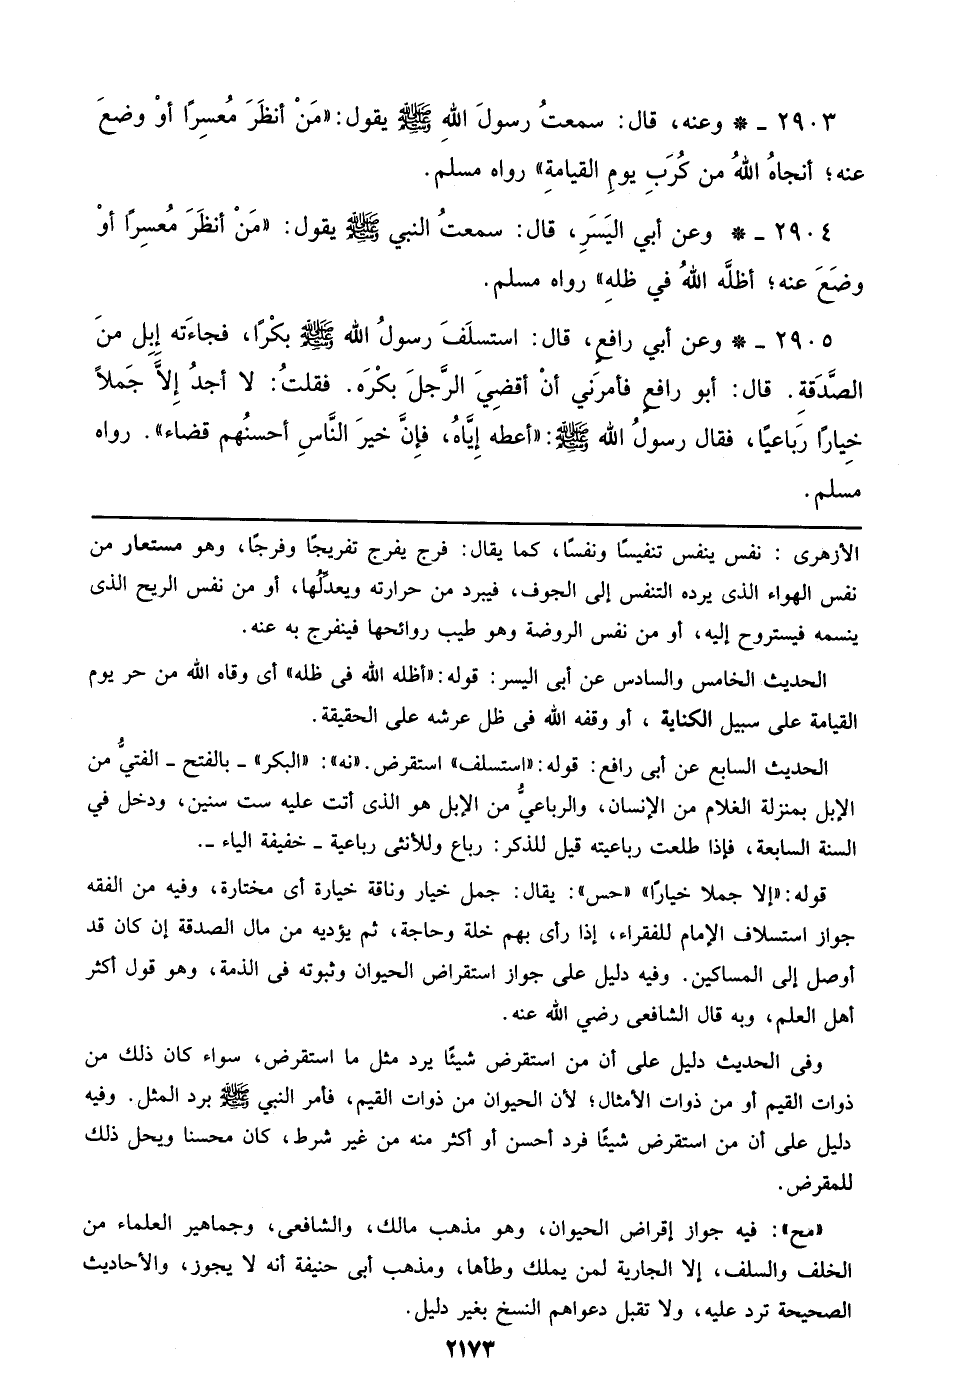 ٢٩٠٣ ـ * وعنه، قال: سمعتُ رسولَ اللهِ ﷺ يقول: «مَنْ أنظَرَ مُعسِرًا أوْ وضعَ
عنه؛ أنجاهُ اللهُ من كُرَبِ يومِ القيامةِ» رواه مسلم.
٢٩٠٤ ـ * وعن أبي اليَسَرِ، قال: سمعتُ النبي ﷺ يقول: «مَنْ أنظَرَ مُعسِرًا أوْ
وضَعَ عنه؛ أظلَّه اللهُ في ظلهِ» رواه مسلم.
٢٩٠٥ ـ * وعن أبي رافعٍ، قال: استسلَفَ رسولُ الله ﷺ بكْرًا، فجاءَته إبِل منَ
الصَّدَقةِ. قال: أبو رافعٍ فأمرَني أنْ أقضيَ الرَّجلَ بكْرَه. فقلتُ: لا أجدُ إلاَّ جَملاً
خِيارًا رَباعيًا، فقال رسولُ الله ﷺ: «أعطه إيَّاهُ، فإنَّ خيرَ النَّاسِ أحسنُهم قضاء». رواه
مسلم.
الأزهرى : نفس ينفس تنفيسًا ونفسًا، كما يقال: فرج يفرج تفريجًا وفرجًا، وهو مستعار من
نفس الهواء الذى يرده التنفس إلى الجوف، فيبرد من حرارته ويعدِّلُها، أو من نفس الريح الذى
ينسمه فيستروح إليه، أو من نفس الروضة وهو طيب روائحها فينفرج به عنه.
الحديث الخامس والسادس عن أبى اليسر: قوله: «أظله الله فى ظله» أى وقاه الله من حر يوم
القيامة على سبيل الكناية ، أو وقفه الله فى ظل عرشه على الحقيقة.
الحديث السابع عن أبى رافع: قوله: «استسلف» استقرض. «نه»: «البكر» ـ بالفتح ـ الفتيُّ من
الإبل بمنزلة الغلام من الإنسان، والرباعيُّ من الإبل هو الذى أتت عليه ست سنين، ودخل في
السنة السابعة، فإذا طلعت رباعيته قيل للذكر: رباع وللأنثى رباعية ـ خفيفة الياء ـ.
قوله: «إلا جملا خيارًا» «حس»: يقال: جمل خيار وناقة خيارة أى مختارة، وفيه من الفقه
جواز استسلاف الإمام للفقراء، إذا رأى بهم خلة وحاجة، ثم يؤديه من مال الصدقة إن كان قد
أوصل إلى المساكين. وفيه دليل على جواز استقراض الحيوان وثبوته فى الذمة، وهو قول أكثر
أهل العلم، وبه قال الشافعى رضي الله عنه.
وفى الحديث دليل على أن من استقرض شيئًا يرد مثل ما استقرض، سواء كان ذلك من
ذوات القيم أو من ذوات الأمثال؛ لأن الحيوان من ذوات القيم، فأمر النبي ﷺ برد المثل. وفيه
دليل على أن من استقرض شيئًا فرد أحسن أو أكثر منه من غير شرط، كان محسنا ويحل ذلك
للمقرض.
«مح»: فيه جواز إقراض الحيوان، وهو مذهب مالك، والشافعى، وجماهير العلماء من
الخلف والسلف، إلا الجارية لمن يملك وطأها، ومذهب أبى حنيفة أنه لا يجوز، والأحاديث
الصحيحة ترد عليه، ولا تقبل دعواهم النسخ بغير دليل.
٢١٧٣